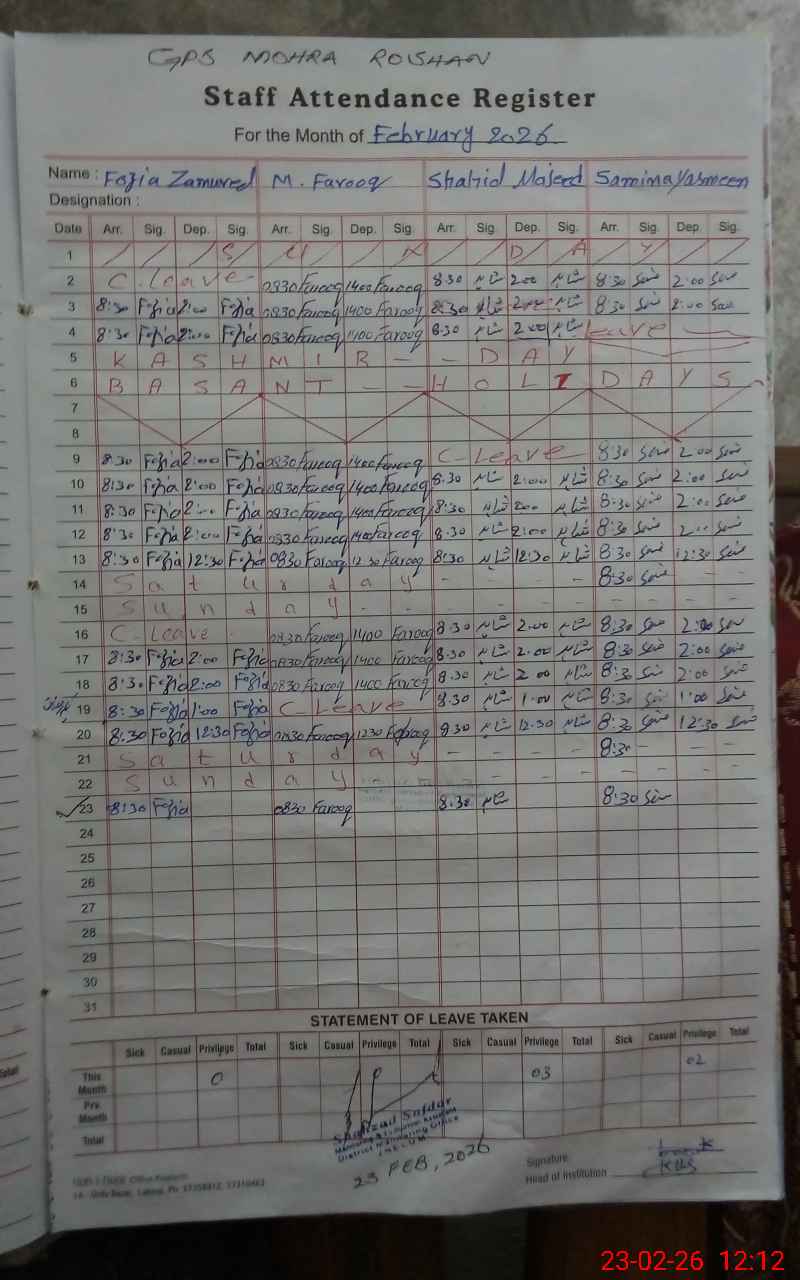 GPS MOHRA ROSHAN
Staff Attendance Register
For the Month of February 2026
Name : Fozia Zamured M. Farooq Shahid Majeed Samina Yasmeen
Designation :
Date Arr. Sig. Dep. Sig. Arr. Sig. Dep. Sig. Arr. Sig. Dep. Sig. Arr. Sig. Dep. Sig.
1 S U N D A Y
2 C. leave 0830 Farooq 1400 Farooq 8:30 شاہد 2:00 شاہد 8:30 2:00
3 8:30 Fozia 2:00 Fozia 0830 Farooq 1400 Farooq 8:30 شاہد 2:00 شاہد 8:30 2:00
4 8:30 Fozia 2:00 Fozia 0830 Farooq 1400 Farooq 8:30 شاہد 2:00 شاہد Leave
5 K A S H M I R - - D A Y
6 B A S A N T - - H O L I D A Y S
7
8
9 8:30 Fozia 2:00 Fozia 0830 Farooq 1400 Farooq C-Leave 8:30 2:00
10 8:30 Fozia 2:00 Fozia 0830 Farooq 1400 Farooq 8:30 شاہد 2:00 شاہد 8:30 2:00
11 8:30 Fozia 2:00 Fozia 0830 Farooq 1400 Farooq 8:30 شاہد 2:00 شاہد 8:30 2:00
12 8:30 Fozia 2:00 Fozia 0830 Farooq 1400 Farooq 8:30 شاہد 2:00 شاہد 8:30 2:00
13 8:30 Fozia 12:30 Fozia 0830 Farooq 1230 Farooq 8:30 شاہد 12:30 شاہد 8:30 12:30
14 S a t u r d a y - - - - 8:30 - -
15 S u n d a y - - - - - - - - -
16 C-Leave 0830 Farooq 1400 Farooq 8:30 شاہد 2:00 شاہد 8:30 2:00
17 8:30 Fozia 2:00 Fozia 0830 Farooq 1400 Farooq 8:30 شاہد 2:00 شاہد 8:30 2:00
18 8:30 Fozia 2:00 Fozia 0830 Farooq 1400 Farooq 8:30 شاہد 2:00 شاہد 8:30 2:00
19 8:30 Fozia 1:00 Fozia C Leave 8:30 شاہد 1:00 شاہد 8:30 1:00
20 8:30 Fozia 12:30 Fozia 0830 Farooq 1230 Farooq 8:30 شاہد 12:30 شاہد 8:30 12:30
21 S a t u r d a y - - - - 8:30 - - -
22 S u n d a y - - - - - - - -
23 8:30 Fozia 0830 Farooq 8:30 شاہد 8:30
24
25
26
27
28
29
30
31
STATEMENT OF LEAVE TAKEN
Sick Casual Privilege Total Sick Casual Privilege Total Sick Casual Privilege Total Sick Casual Privilege Total
This Month 0 03 02
Prv. Month
Total
Shahzad Safdar
District Monitoring Office
JHELUM
23 FEB, 2026
Signature
Head of Institution
23-02-26 12:12